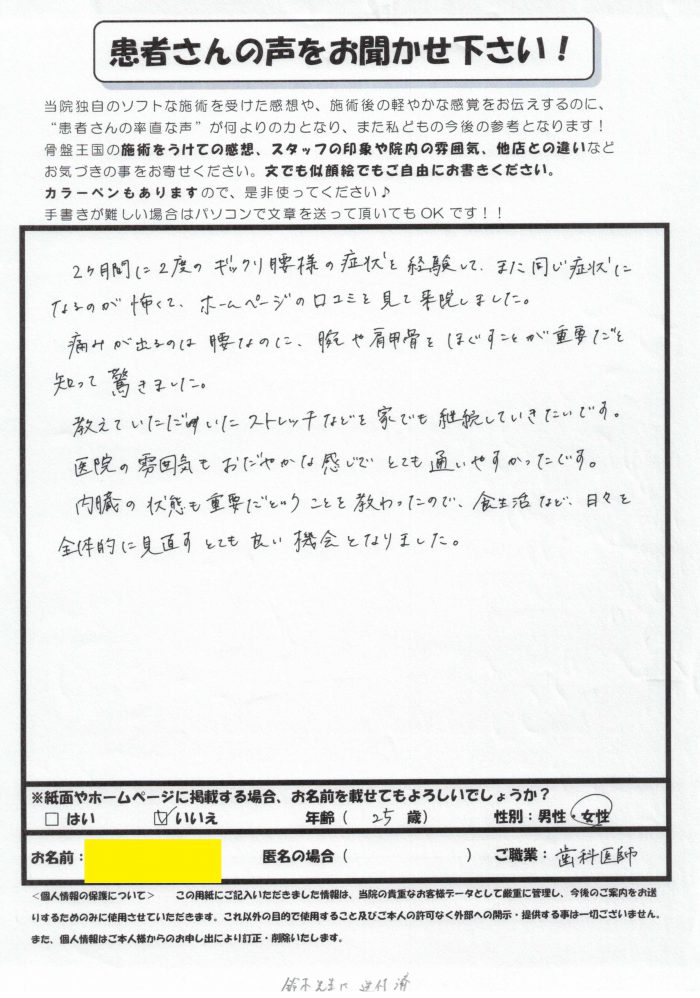 患者さんの声をお聞かせ下さい！
当院独自のソフトな施術を受けた感想や、施術後の軽やかな感覚をお伝えするのに、
“患者さんの率直な声”が何よりの力となり、また私どもの今後の参考となります！
骨盤王国の施術をうけての感想、スタッフの印象や院内の雰囲気、他店との違いなど
お気づきの事をお寄せください。文でも似顔絵でもご自由にお書きください。
カラーペンもありますので、是非使ってください♪
手書きが難しい場合はパソコンで文章を送って頂いてもOKです！！
2ヶ月間に2度のギックリ腰様の症状を経験して、また同じ症状に
なるのが怖くて、ホームページの口コミを見て来院しました。
痛みが出るのは腰なのに、腕や肩甲骨をほぐすことが重要だと
知って驚きました。
教えていただいたストレッチなどを家でも継続していきたいです。
医院の雰囲気もおだやかな感じでとても通いやすかったです。
内臓の状態も重要だということを教わったので、食生活など、日々を
全体的に見直すとても良い機会となりました。
※紙面やホームページに掲載する場合、お名前を載せてもよろしいでしょうか？
□はい ☑いいえ 年齢（ 25 歳） 性別：男性・女性
お名前： 匿名の場合（ ） ご職業：歯科医師
＜個人情報の保護について＞ この用紙にご記入いただきました情報は、当院の貴重なお客様データとして厳重に管理し、今後のご案内をお送
りするためのみに使用させていただきます。これ以外の目的で使用すること及びご本人の許可なく外部への開示・提供する事は一切ございません。
また、個人情報はご本人様からのお申し出により訂正・削除いたします。
鈴木先生に送付済